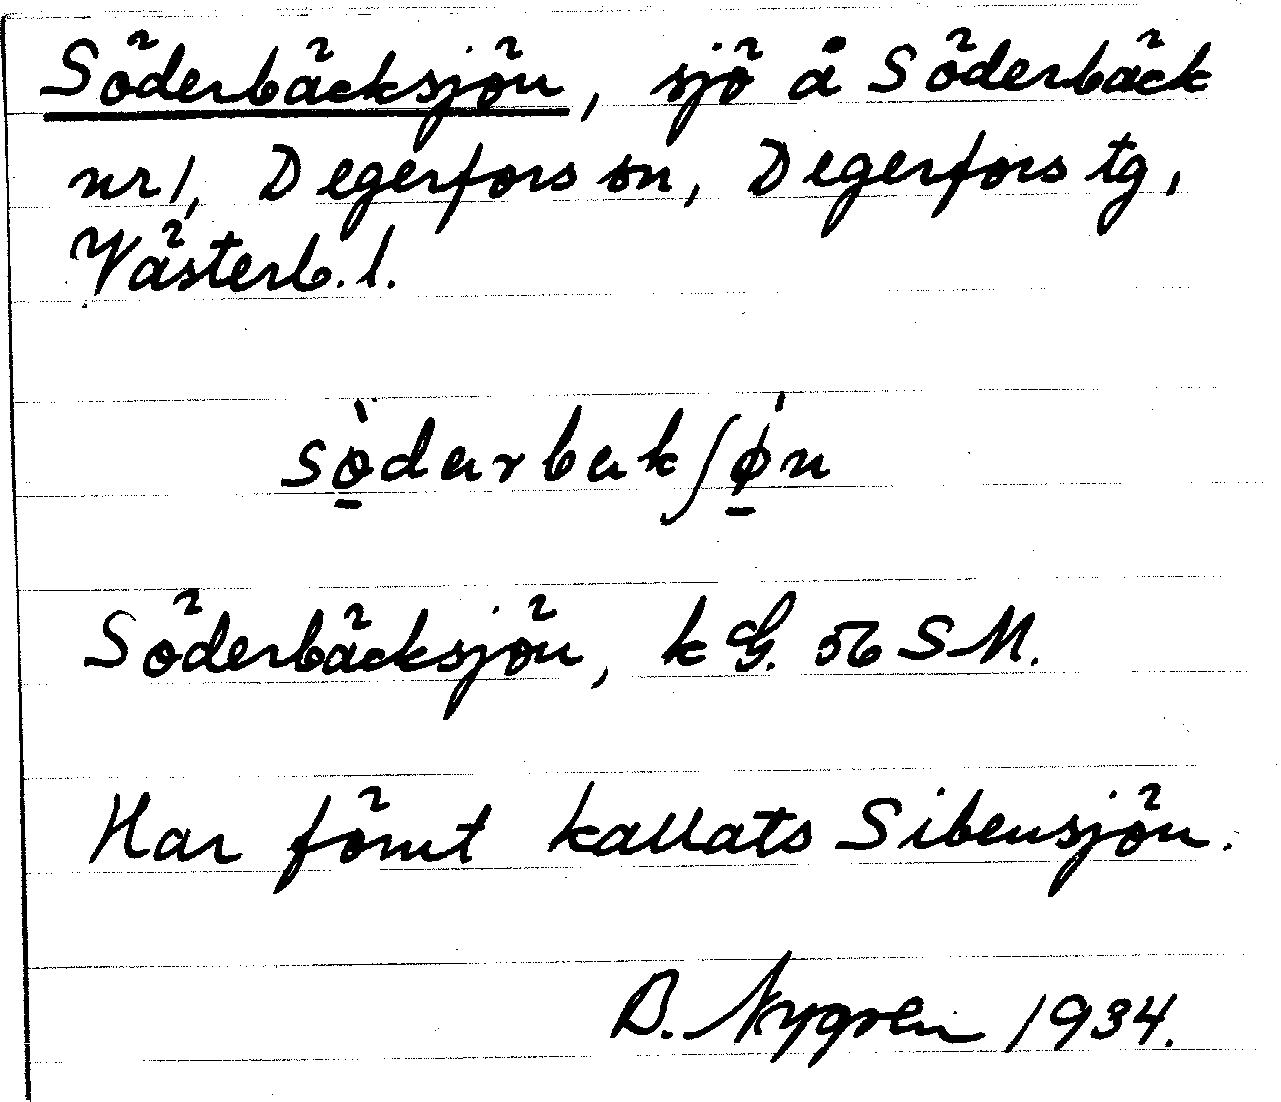 Söderbäcksjön, sjö å Söderbäck
nr 1, Degerfors sn, Degerfors tg,
Västerb. l.
sò̱darbakʃǿ̱n
Söderbäcksjön, k G. 56 SM.
Har förut kallats Sibensjön.
B. Nygren 1934.